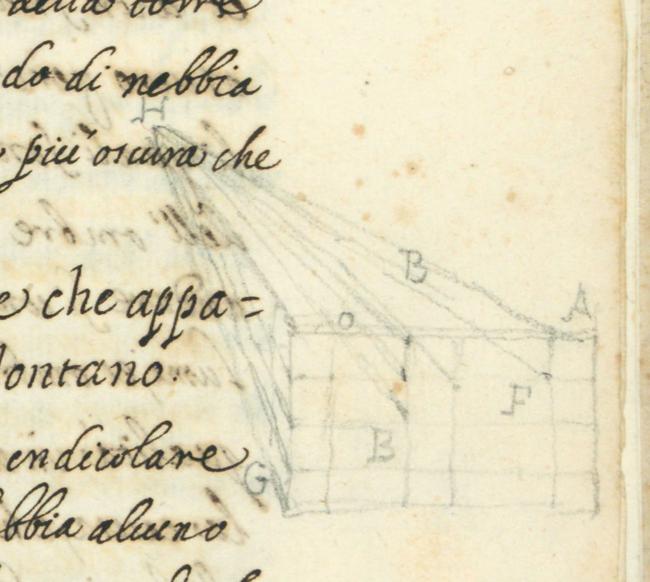 della torre
do di nebbia
H
più oscura che
dell'ombre
B
e che appa=
A
o
lontano.
F
B
endicolare
G
bbia alcuno